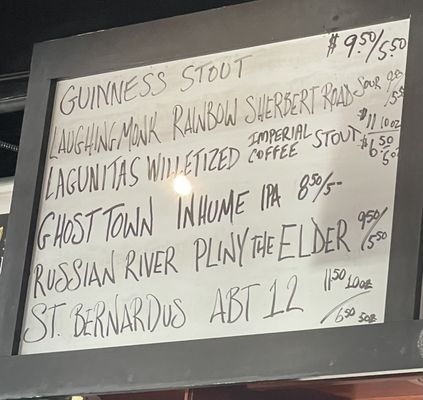 GUINNESS STOUT $9.50/5.50
LAUGHING MONK RAINBOW SHERBERT ROAD SOUR 9.50/5.50
LAGUNITAS WILLETIZED IMPERIAL COFFEE STOUT $11 10oz $6.50 5oz
GHOST TOWN INHUME IPA 8.50/5-
RUSSIAN RIVER PLINY THE ELDER 9.50/5.50
ST. BERNARDUS ABT 12 11.50 10oz/6.50 5oz